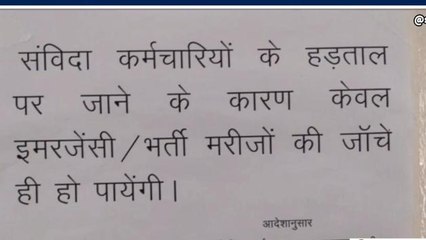 संविदा कर्मचारियों के हड़ताल
पर जाने के कारण केवल
इमरजेंसी/भर्ती मरीजों की जॉचे
ही हो पायेंगी।
आदेशानुसार